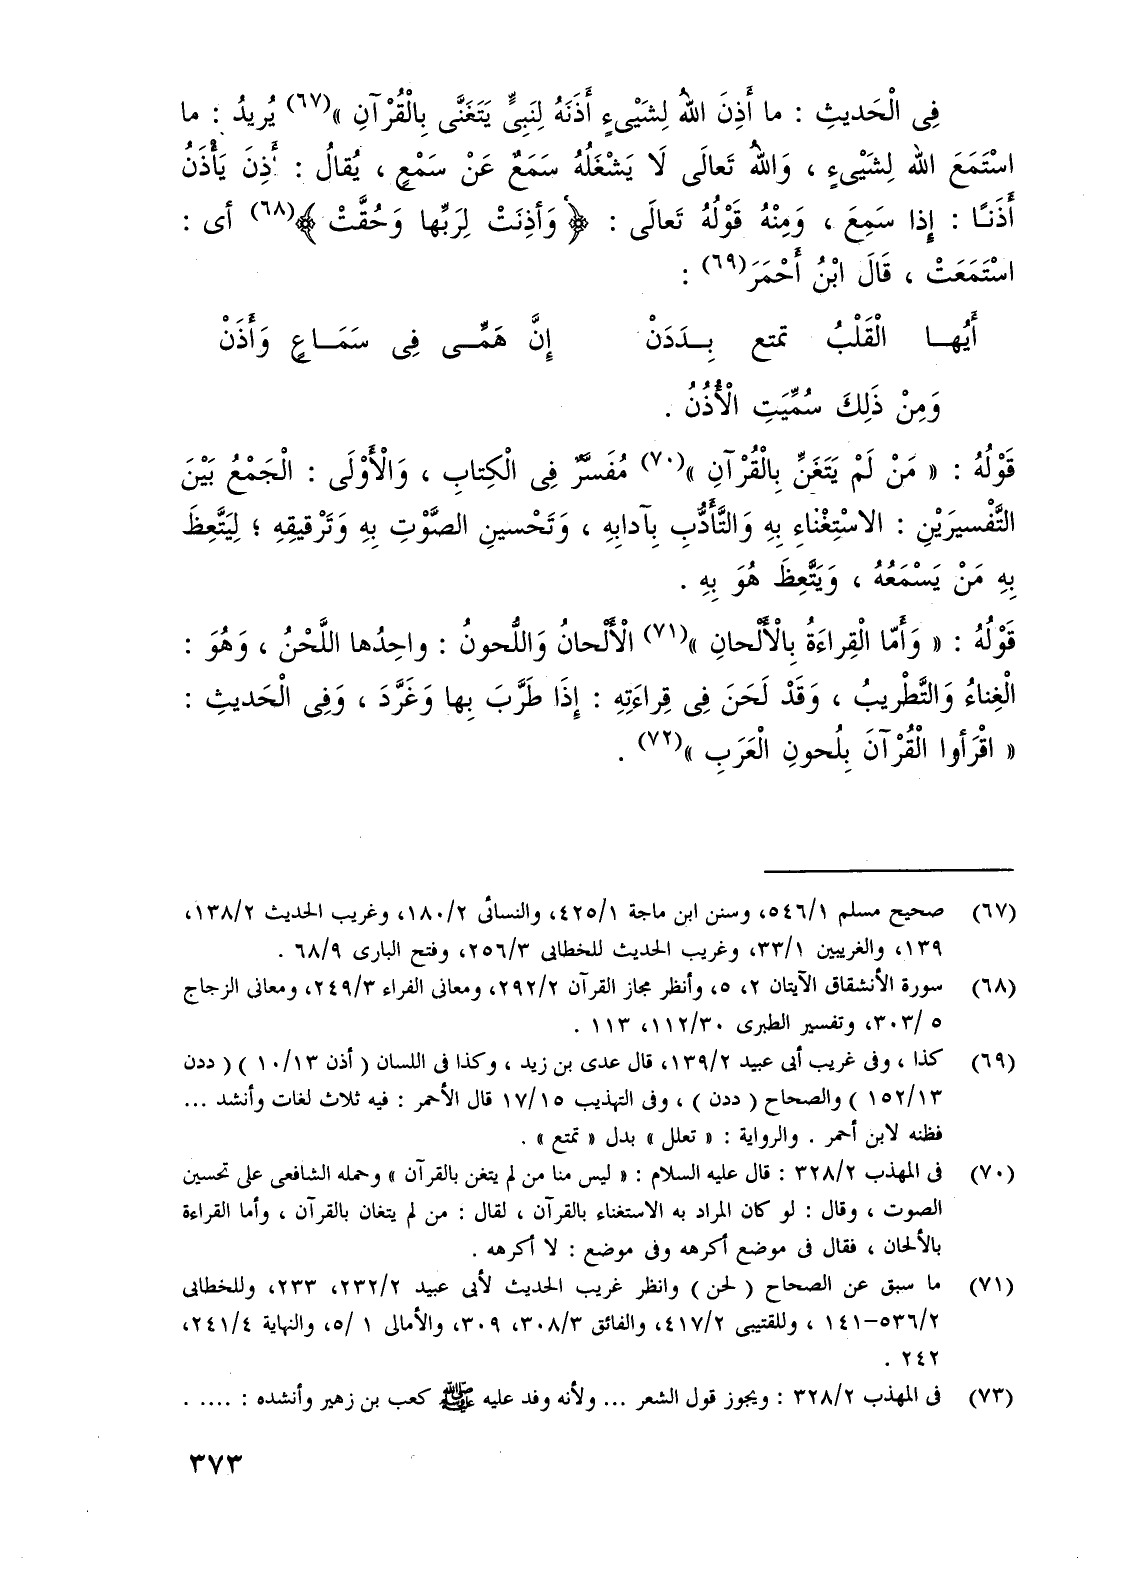 فِى الْحَديثِ : ما أَذِنَ اللهُ لِشَيْىءٍ أَذَنَهُ لِنَبِىٍّ يَتَغَنَّى بِالْقُرْآنِ »(٦٧) يُريدُ : ما
اسْتَمَعَ الله لِشَيْىءٍ ، وَاللهُ تَعالَى لَا يَشْغَلُهُ سَمَعٌ عَنْ سَمْعٍ ، يُقالُ : أَذِنَ يَأْذَنُ
أَذَنًـا : إِذا سَمِعَ ، وَمِنْهُ قَوْلُهُ تَعالَى : ﴿ وَأَذِنَتْ لِرَبِّها وَحُقَّتْ ﴾(٦٨) أى :
اسْتَمَعَتْ ، قَالَ ابْنُ أَحْمَرَ(٦٩) :
أَيُهـا الْقَلْبُ تمتع بِـدَدَنْ إِنَّ هَمِّـى فِى سَمَـاعٍ وَأَذَنْ
وَمِنْ ذَلِكَ سُمِّيَتِ الْأُذُنُ .
قَوْلُهُ : « مَنْ لَمْ يَتَغَنِّ بِالْقُرْآنِ »(٧٠) مُفَسَّرٌ فِى الْكِتابِ ، وَالْأَوْلَى : الْجَمْعُ بَيْنَ
التَّفْسيرَيْنِ : الاسْتِغْناءِ بِهِ وَالتَّأَدُّبِ بِآدابِهِ ، وَتَحْسينِ الصَّوْتِ بِهِ وَتَرْقيقِهِ ؛ لِيَتَّعِظَ
بِهِ مَنْ يَسْمَعُهُ ، وَيَتَّعِظَ هُوَ بِهِ .
قَوْلُهُ : « وَأَمّا الْقِراءَةُ بِالْأَلْحانِ »(٧١) الْأَلْحانُ وَاللُّحونُ : واحِدُها اللَّحْنُ ، وَهُوَ :
الْغِناءُ وَالتَّطْريبُ ، وَقَدْ لَحَنَ فِى قِراءَتِهِ : إِذَا طَرَّبَ بِها وَغَرَّدَ ، وَفِى الْحَديثِ :
« اقْرَأوا الْقُرْآنَ بِلُحونِ الْعَرَبِ »(٧٢) .
(٦٧) صحيح مسلم ٥٤٦/١، وسنن ابن ماجة ٤٢٥/١، والنسائى ١٨٠/٢، وغريب الحديث ١٣٨/٢،
١٣٩، والغريبين ٣٣/١، وغريب الحديث للخطابى ٢٥٦/٣، وفتح البارى ٦٨/٩ .
(٦٨) سورة الأنشقاق الآيتان ٢، ٥، وأنظر مجاز القرآن ٢٩٢/٢، ومعانى الفراء ٢٤٩/٣، ومعانى الزجاج
٥ /٣٠٣، وتفسير الطبرى ١١٢/٣٠، ١١٣ .
(٦٩) كذا ، وفى غريب أبى عبيد ١٣٩/٢، قال عدى بن زيد ، وكذا فى اللسان ( أذن ١٠/١٣ ) ( ددن
١٥٢/١٣ ) والصحاح ( ددن ) ، وفى التهذيب ١٧/١٥ قال الأحمر : فيه ثلاث لغات وأنشد ...
فظنه لابن أحمر . والرواية : « تعلل » بدل « تمتع » .
(٧٠) فى المهذب ٣٢٨/٢ : قال عليه السلام : « ليس منا من لم يتغن بالقرآن » وحمله الشافعى على تحسين
الصوت ، وقال : لو كان المراد به الاستغناء بالقرآن ، لقال : من لم يتغان بالقرآن ، وأما القراءة
بالألحان ، فقال فى موضع أكرهه وفى موضع : لا أكرهه .
(٧١) ما سبق عن الصحاح ( لحن ) وانظر غريب الحديث لأبى عبيد ٢٣٢/٢، ٢٣٣، وللخطابى
٥٣٦/٢-١٤١ ، وللقتيبى ٤١٧/٢، والفائق ٣٠٨/٣، ٣٠٩، والأمالى ١ /٥، والنهاية ٢٤١/٤،
٢٤٢ .
(٧٣) فى المهذب ٣٢٨/٢ : ويجوز قول الشعر ... ولأنه وفد عليه ﷺ كعب بن زهير وأنشده : .... .
٣٧٣